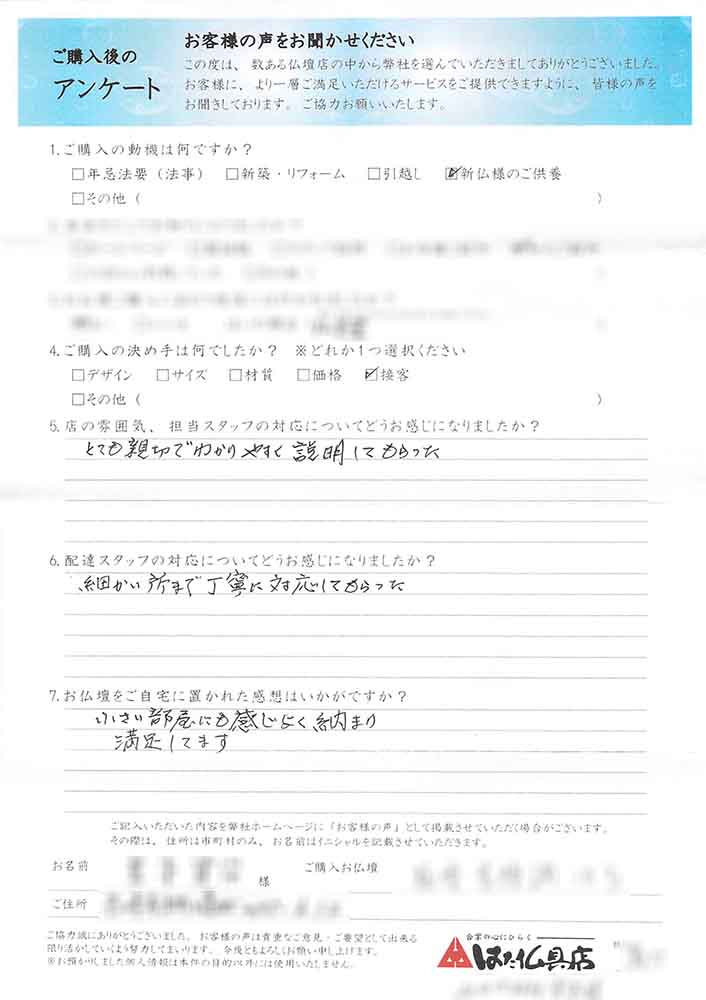 ご購入後の
アンケート
お客様の声をお聞かせください
この度は、数ある仏壇店の中から弊社を選んでいただきましてありがとうございました。
お客様に、より一層ご満足いただけるサービスをご提供できますように、皆様の声を
お聞きしております。ご協力お願いいたします。
1.ご購入の動機は何ですか？
□年忌法要（法事） □新築・リフォーム □引越し ☑新仏様のご供養
□その他（ ）
4.ご購入の決め手は何でしたか？ ※どれか1つ選択ください
□デザイン □サイズ □材質 □価格 ☑接客
□その他（ ）
5.店の雰囲気、担当スタッフの対応についてどうお感じになりましたか？
とても親切でわかりやすく説明してもらった
6.配達スタッフの対応についてどうお感じになりましたか？
細かい所まで丁寧に対応してもらった
7.お仏壇をご自宅に置かれた感想はいかがですか？
小さい部屋にも感じよく納まり
満足してます
ご記入いただいた内容を弊社ホームページに「お客様の声」として掲載させていただく場合がございます。
その際は、住所は市町村のみ、お名前はイニシャルを記載させていただきます。
お名前 様 ご購入お仏壇
ご住所
ご協力誠にありがとうございました。お客様の声は貴重なご意見・ご要望として出来る
限り活かしていくよう努力してまいります。今後ともよろしくお願い申し上げます。
※お預かりしました個人情報は本件の目的以外には使用いたしません。
合掌の心にひらく
はた仏具店